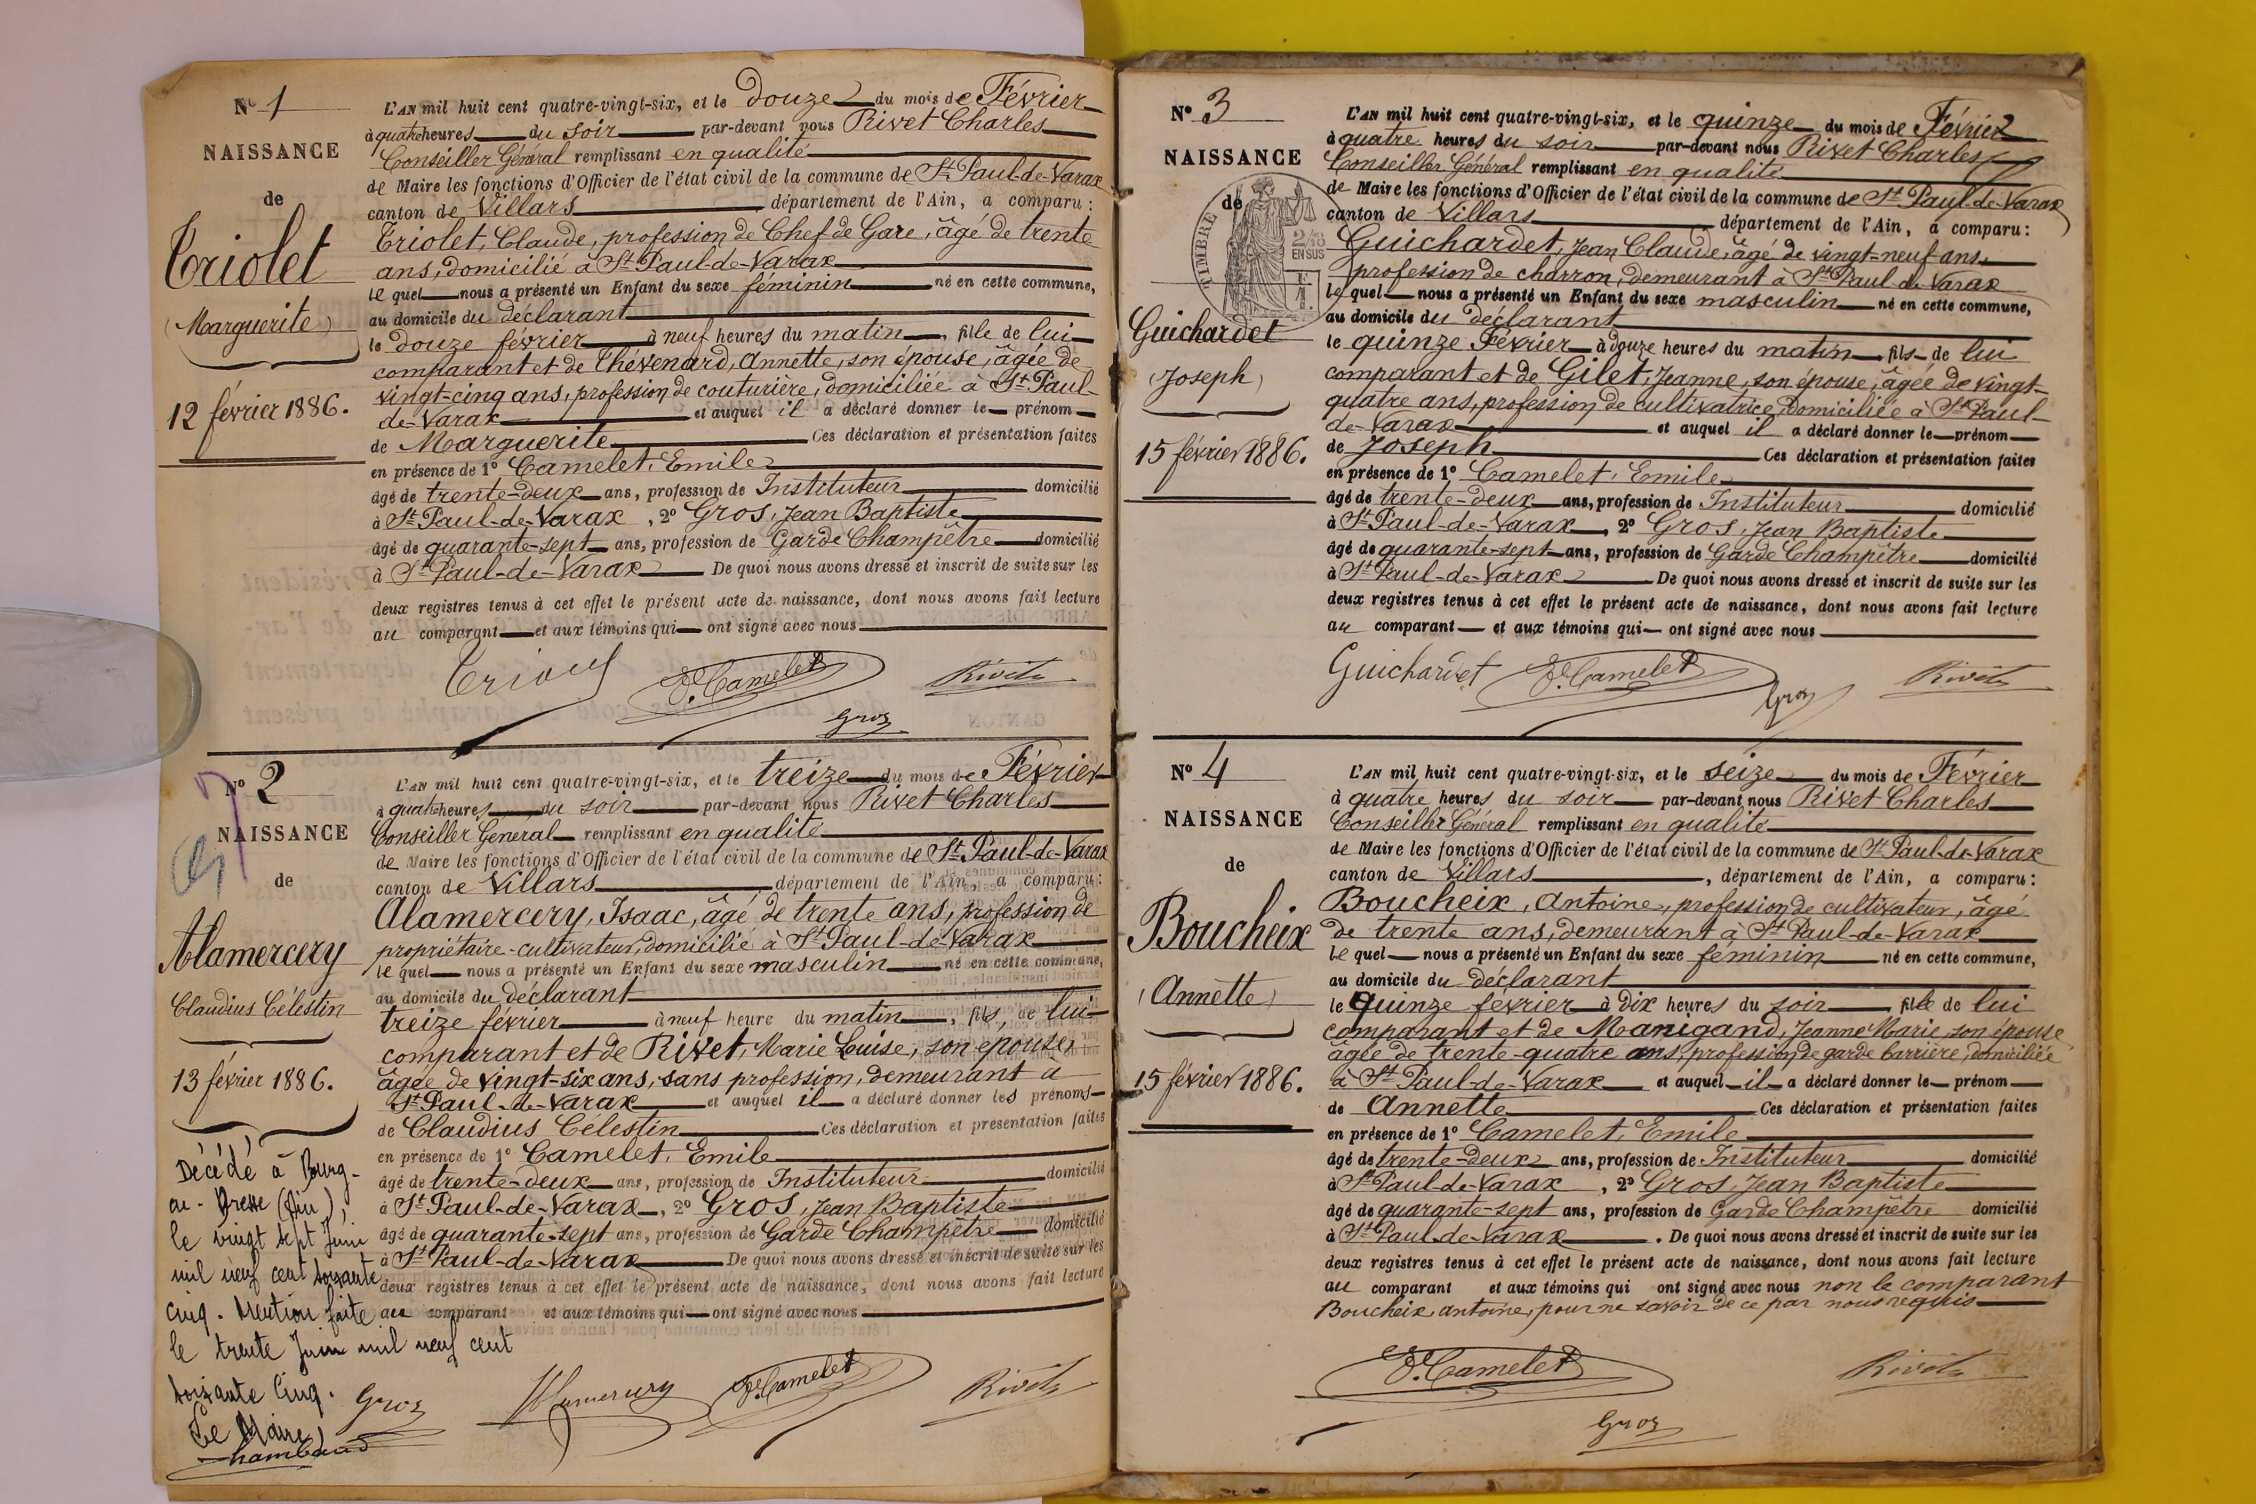 N° 1
NAISSANCE
de
Triolet
(Marguerite)
12 février 1886.
L'AN mil huit cent quatre-vingt-six, et le douze du mois de Février
à quatre heures du soir par-devant nous Rivet Charles
Conseiller Général remplissant en qualité
de Maire les fonctions d'Officier de l'état civil de la commune de St Paul-de-Varax
canton de Villars département de l'Ain, a comparu :
Triolet, Claude, profession de Chef de Gare, âgé de trente
ans, domicilié à St Paul-de-Varax
le quel nous a présenté un Enfant du sexe féminin né en cette commune,
au domicile du déclarant
le douze février à neuf heures du matin, fille de lui
comparant et de Thévenard, Annette, son épouse, âgée de
vingt-cinq ans, profession de couturière, domiciliée à St Paul-
de-Varax et auquel il a déclaré donner le prénom
de Marguerite Ces déclaration et présentation faites
en présence de 1° Camelet, Emile
âgé de trente-deux ans, profession de Instituteur domicilié
à St Paul-de-Varax, 2° Gros, Jean Baptiste
âgé de quarante-sept ans, profession de Garde Champêtre domicilié
à St Paul-de-Varax De quoi nous avons dressé et inscrit de suite sur les
deux registres tenus à cet effet le présent acte de naissance, dont nous avons fait lecture
au comparant et aux témoins qui ont signé avec nous
Triolet E. Camelet Rivet
Gros
N° 2
NAISSANCE
de
Alamercery
Claudius Célestin
13 février 1886.
Décédé à Bourg-
en-Bresse (Ain),
le vingt sept Juin
mil neuf cent soixante
cinq. Mention faite
le trente Juin mil neuf cent
soixante cinq.
Le Maire
L'AN mil huit cent quatre-vingt-six, et le treize du mois de Février
à quatre heures du soir par-devant nous Rivet Charles
Conseiller Général remplissant en qualité
de Maire les fonctions d'Officier de l'état civil de la commune de St Paul-de-Varax
canton de Villars département de l'Ain, a comparu :
Alamercery, Isaac, âgé de trente ans, profession de
propriétaire-cultivateur, domicilié à St Paul-de-Varax
le quel nous a présenté un Enfant du sexe masculin né en cette commune,
au domicile du déclarant
treize février à neuf heure du matin, fils, de lui-
comparant et de Rivet, Marie Louise, son épouse,
âgée de vingt-six ans, sans profession, demeurant à
St Paul-de-Varax et auquel il a déclaré donner les prénoms
de Claudius Célestin Ces déclaration et présentation faites
en présence de 1° Camelet, Emile
âgé de trente-deux ans, profession de Instituteur domicilié
à St Paul-de-Varax, 2° Gros, Jean Baptiste
âgé de quarante-sept ans, profession de Garde Champêtre domicilié
à St Paul-de-Varax De quoi nous avons dressé et inscrit de suite sur les
deux registres tenus à cet effet le présent acte de naissance, dont nous avons fait lecture
au comparant et aux témoins qui ont signé avec nous
Gros Alamercery E. Camelet Rivet
N° 3
NAISSANCE
de
TIMBRE
EN SUS
Guichardet
(Joseph)
15 février 1886.
L'AN mil huit cent quatre-vingt-six, et le quinze du mois de Février
à quatre heures du soir par-devant nous Rivet Charles
Conseiller Général remplissant en qualité
de Maire les fonctions d'Officier de l'état civil de la commune de St Paul-de-Varax
canton de Villars département de l'Ain, a comparu :
Guichardet, Jean Claude, âgé de vingt-neuf ans,
profession de charron, demeurant à St Paul de Varax
le quel nous a présenté un Enfant du sexe masculin né en cette commune,
au domicile du déclarant
le quinze Février à douze heures du matin, fils de lui
comparant et de Gilet, Jeanne, son épouse, âgée de vingt-
quatre ans, profession de cultivatrice, domiciliée à St Paul-
de-Varax et auquel il a déclaré donner le prénom
de Joseph Ces déclaration et présentation faites
en présence de 1° Camelet, Emile
âgé de trente-deux ans, profession de Instituteur domicilié
à St Paul-de-Varax, 2° Gros, Jean Baptiste
âgé de quarante-sept ans, profession de Garde Champêtre domicilié
à St Paul-de-Varax De quoi nous avons dressé et inscrit de suite sur les
deux registres tenus à cet effet le présent acte de naissance, dont nous avons fait lecture
au comparant et aux témoins qui ont signé avec nous
Guichardet E. Camelet Gros Rivet
N° 4
NAISSANCE
de
Boucheix
(Annette)
15 février 1886.
L'AN mil huit cent quatre-vingt-six, et le seize du mois de Février
à quatre heures du soir par-devant nous Rivet Charles
Conseiller Général remplissant en qualité
de Maire les fonctions d'Officier de l'état civil de la commune de St Paul-de-Varax
canton de Villars, département de l'Ain, a comparu :
Boucheix, Antoine, profession de cultivateur, âgé
de trente ans, demeurant à St Paul-de-Varax
le quel nous a présenté un Enfant du sexe féminin né en cette commune,
au domicile du déclarant
le quinze février à dix heures du soir, fille de lui
comparant et de Manigand, Jeanne Marie, son épouse,
âgée de trente-quatre ans, profession de garde barrière, domiciliée
à St Paul-de-Varax et auquel il a déclaré donner le prénom
de Annette Ces déclaration et présentation faites
en présence de 1° Camelet, Emile
âgé de trente-deux ans, profession de Instituteur domicilié
à St Paul-de-Varax, 2° Gros, Jean Baptiste
âgé de quarante-sept ans, profession de Garde Champêtre domicilié
à St Paul-de-Varax. De quoi nous avons dressé et inscrit de suite sur les
deux registres tenus à cet effet le présent acte de naissance, dont nous avons fait lecture
au comparant et aux témoins qui ont signé avec nous non le comparant
Boucheix, antoine, pour ne savoir de ce par nous requis
E. Camelet Rivet
Gros